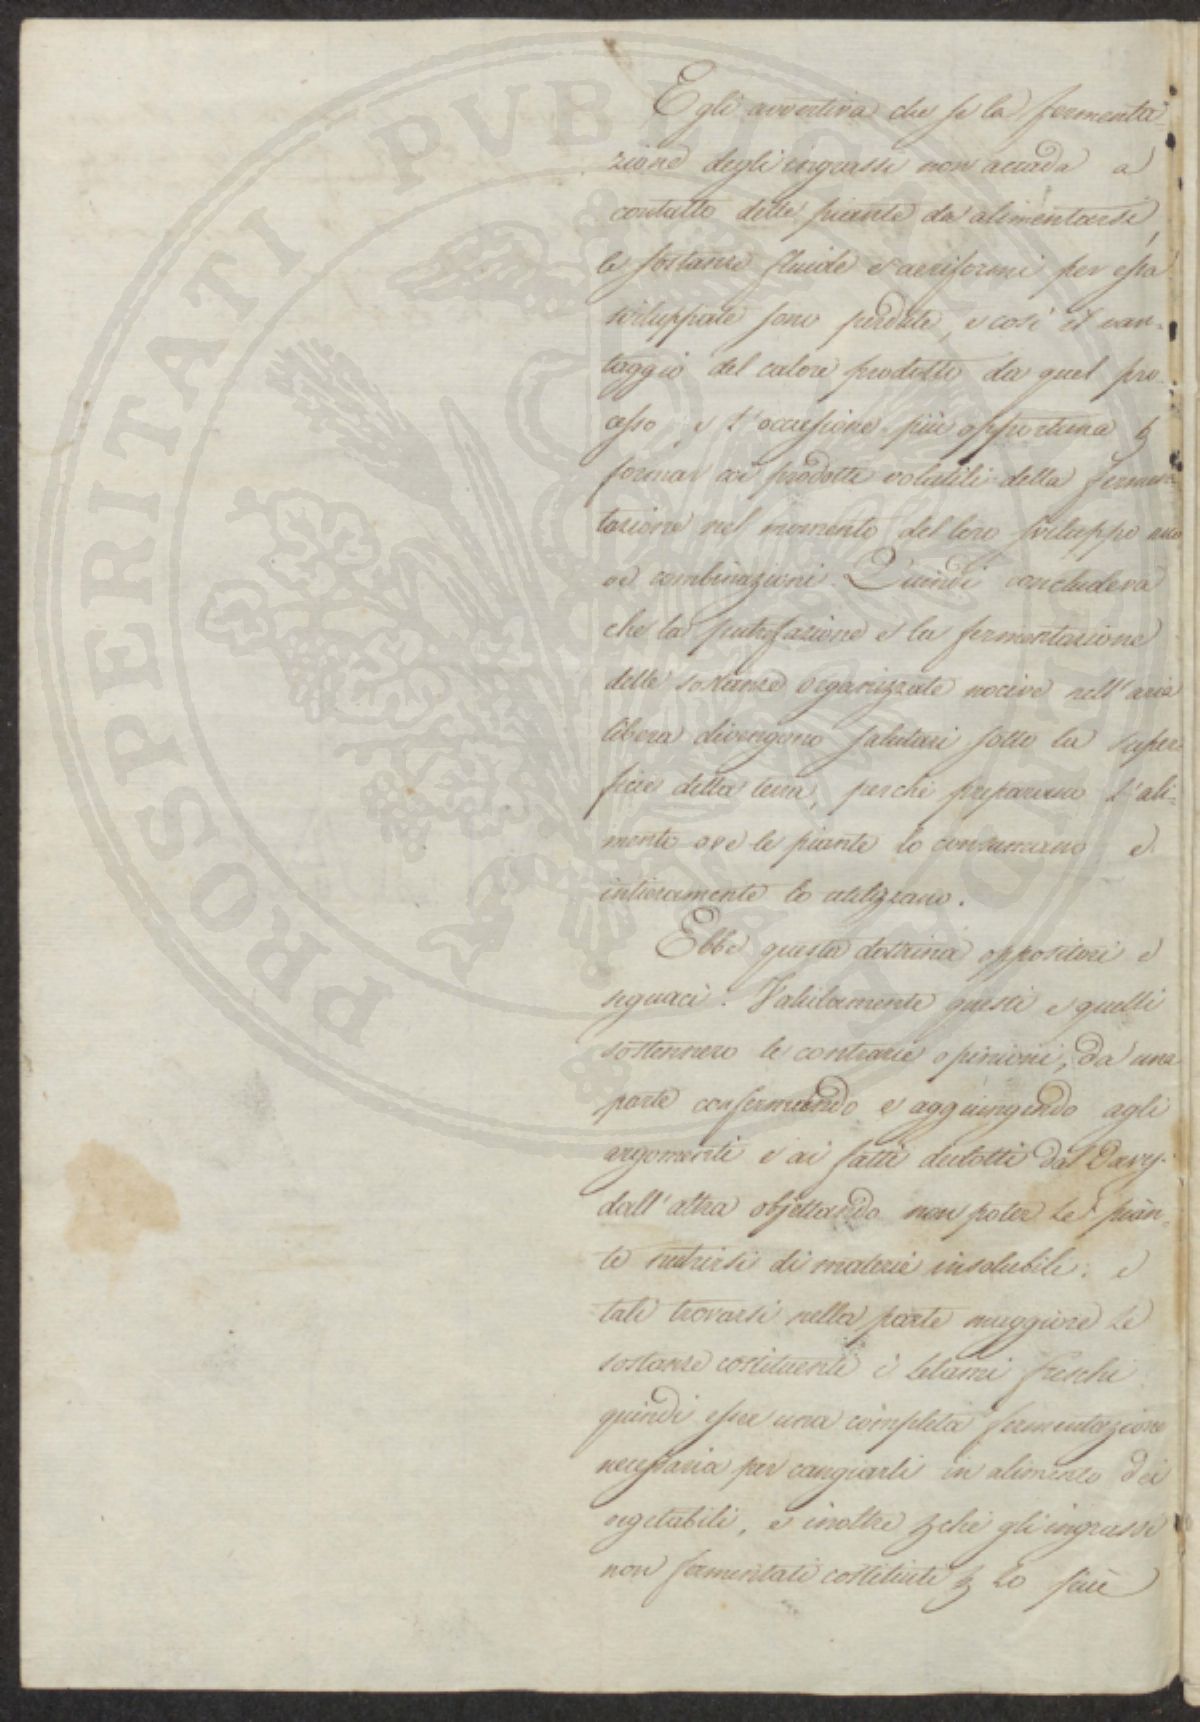 PROSPERITATI PUBLICAE
Egli avvertiva che se la fermenta-
zione degli ingrassi non accada a
contatto delle piante da alimentarsi,
le sostanze fluide e aeriformi per essa
sviluppate sono perdute, e così il van-
taggio del calore prodotto da quel pro-
cesso, e l'occasione più opportuna p
formar coi prodotti volatili della fermen
tazione nel momento del loro sviluppo nuo
ve combinazioni. Quindi concludeva
che la putrefazione e la fermentazione
delle sostanze organizzate nocive nell'aria
libera divengono salutari sotto la super-
ficie della terra, perchè preparano l'ali-
mento ove le piante lo consumano e
intieramente lo utilizzano.
Ebbe questa dottrina oppositori e
seguaci. Validamente questi e quelli
sostennero le contrarie opinioni, da una
parte confermando e aggiungendo agli
argomenti e ai fatti dedotti dal Davy:
dall'altra objettando non poter le pian-
te nutrirsi di materie insolubili: e
tali trovarsi nella parte maggiore le
sostanze costituenti i letami freschi
quindi esser una completa fermentazione
necessaria per cangiarli in alimento dei
vegetabili, e inoltre pchè gli ingrassi
non fermentati costituiti p lo più